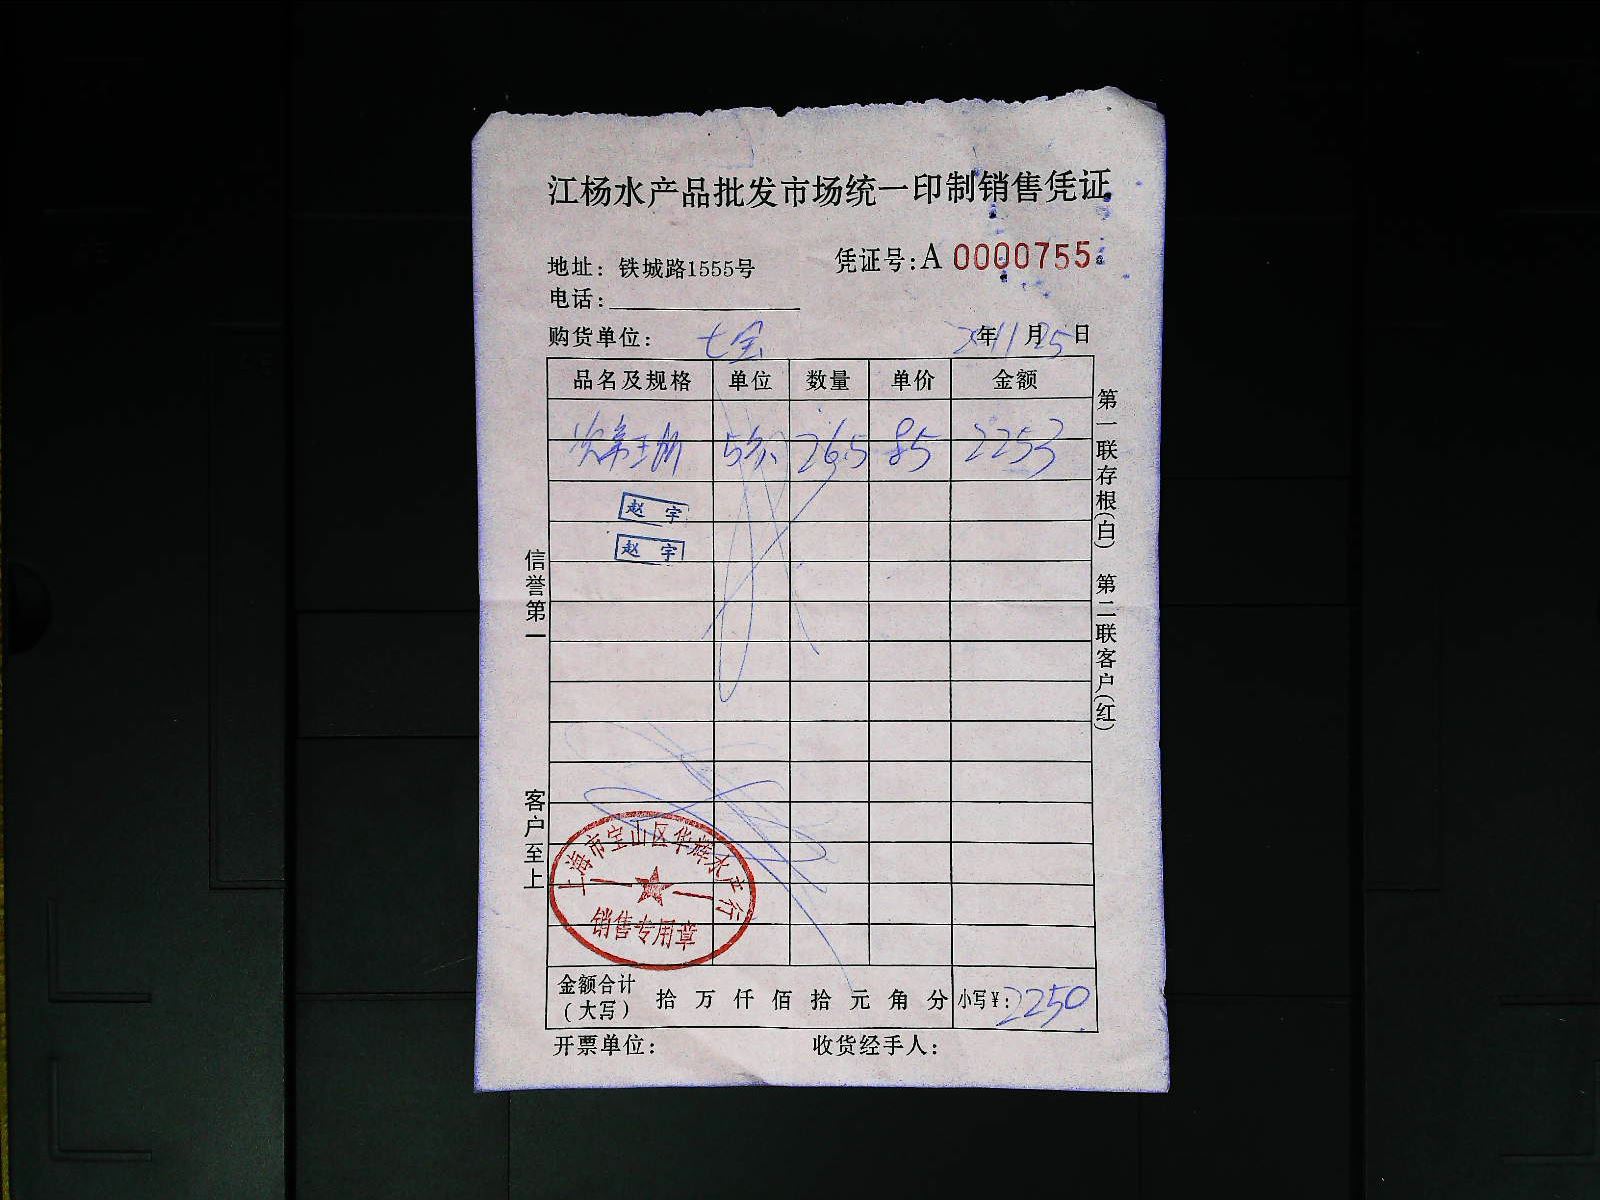 江杨水产品批发市场统一印制销售凭证
地址：铁城路1555号
凭证号：A 0000755
电话：
购货单位：七宝
年11月25日
品名及规格 单位 数量 单价 金额
26.5 85 2253
赵宇
赵宇
信誉第一
客户至上
第一联存根(白) 第二联客户(红)
上海市宝山区华辉水产行
销售专用章
金额合计（大写） 拾 万 仟 佰 拾 元 角 分 小写¥：2250
开票单位： 收货经手人：